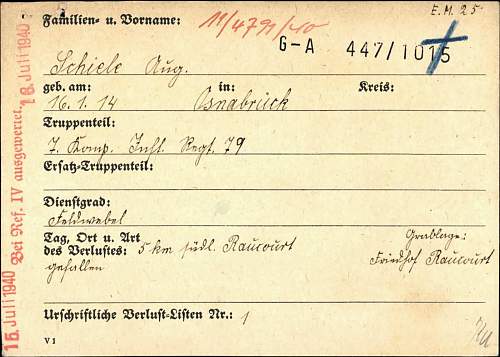 Familien- u. Vorname:
11/4791/40
E.M. 25
G-A 447/1015
Schiele Aug.
geb. am: in: Kreis:
16.1.14 Osnabrück
Truppenteil:
7. Komp. Inft. Regt. 79
Ersatz-Truppenteil:
Dienstgrad:
Feldwebel
Tag, Ort u. Art
des Verlustes: 5 km südl. Raucourt
gefallen
Grablage:
Friedhof Raucourt
Urschriftliche Verlust-Listen Nr.: 1
V 1
15. Juli 1940 Bei Ref. IV ausgewertet. 16. Juli 1940